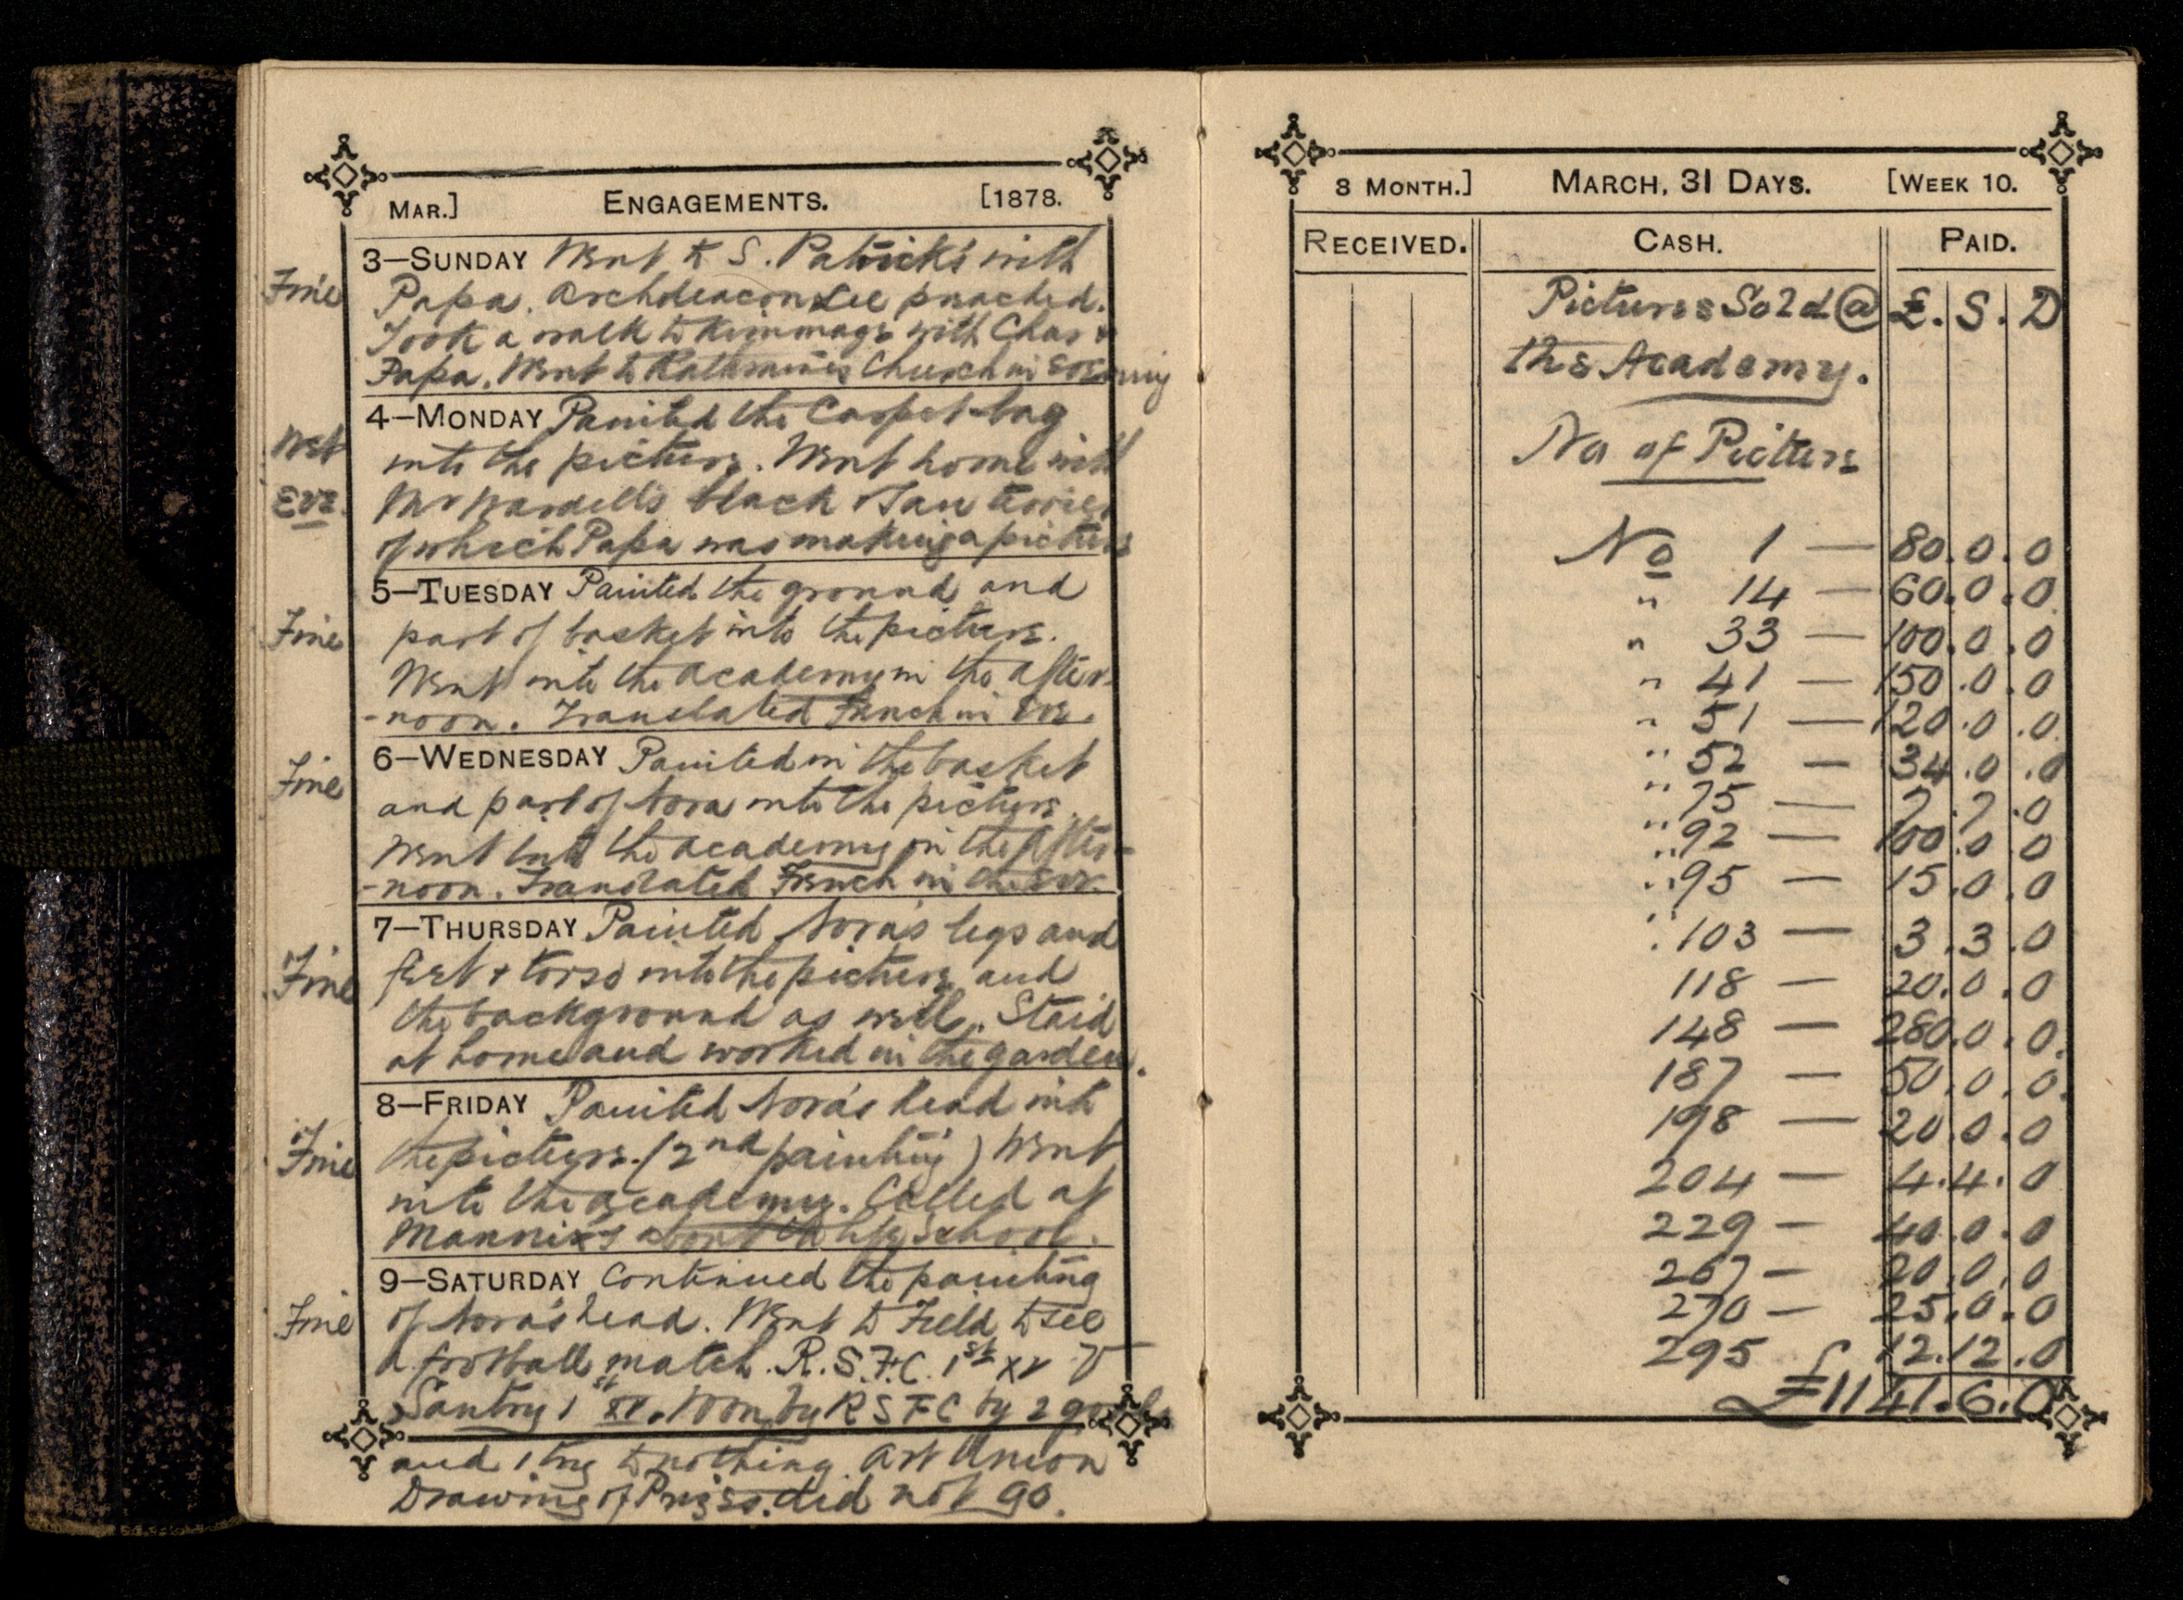 Mar.] Engagements. [1878.
3—Sunday Went to S. Patrick's with
Fine
Papa. Archdeacon Lee preached.
Took a walk to Kimmage with Chas &
Papa. Went to Rathmines Church in evening
4—Monday Painted the Carpet-bag
Wet
into the picture. Went home with
Eve.
Mr Wardell's black & Tan terrier
of which Papa was making a picture
5—Tuesday Painted the ground and
Fine
part of basket into the picture.
Went into the academy in the after-
-noon. Translated French in Eve.
6—Wednesday Painted in the basket
Fine
and part of Nora into the picture.
Went into the academy in the after-
-noon. Translated French in the Eve.
7—Thursday Painted Nora's legs and
Fine
feet & torso into the picture and
the background as well. Staid
at home and worked in the garden.
8—Friday Painted Nora's head into
Fine
the picture. (2nd painting) Went
into the academy. Called at
Mannix's about the life School.
9—Saturday Continued the painting
Fine
of Nora's head. Went to Field to see
a football match. R.S.F.C. 1st XV V
Santry 1st XV. Won by RSFC by 2 goals
and 1 try to nothing. Art Union
Drawing of Prizes. did not go.
3 Month.] March, 31 Days. [Week 10.
Received. Cash. Paid.
Pictures Sold @ £. S. D
the Academy.
No of Picture
No 1 — 80.0.0
" 14 — 60.0.0
" 33 — 100.0.0
" 41 — 150.0.0
" 51 — 120.0.0
" 52 — 34.0.0
" 75 — 7.7.0
" 92 — 100.0.0
" 95 — 15.0.0
" 103 — 3.3.0
118 — 20.0.0
148 — 280.0.0.
187 — 50.0.0.
198 — 20.0.0
204 — 4.4.0
229 — 40.0.0
267 — 20.0.0
270 — 25.0.0
295 12.12.0
£1141.6.0